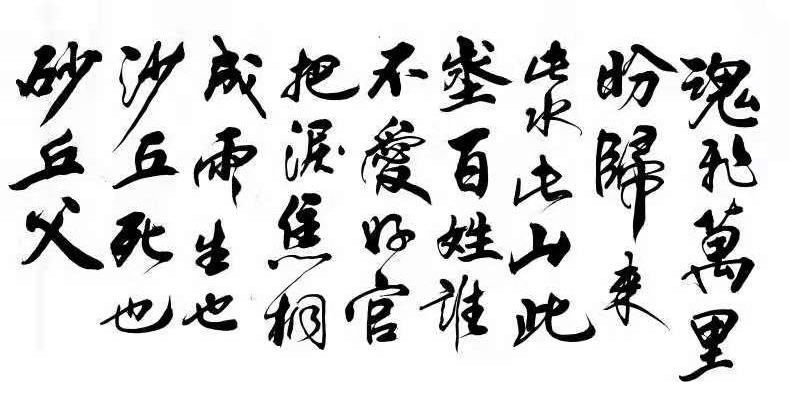 魂飛萬里
盼歸来
此水此山此
百姓誰
不愛好官
把淚焦桐
成雨生也
沙丘死也
砂丘父